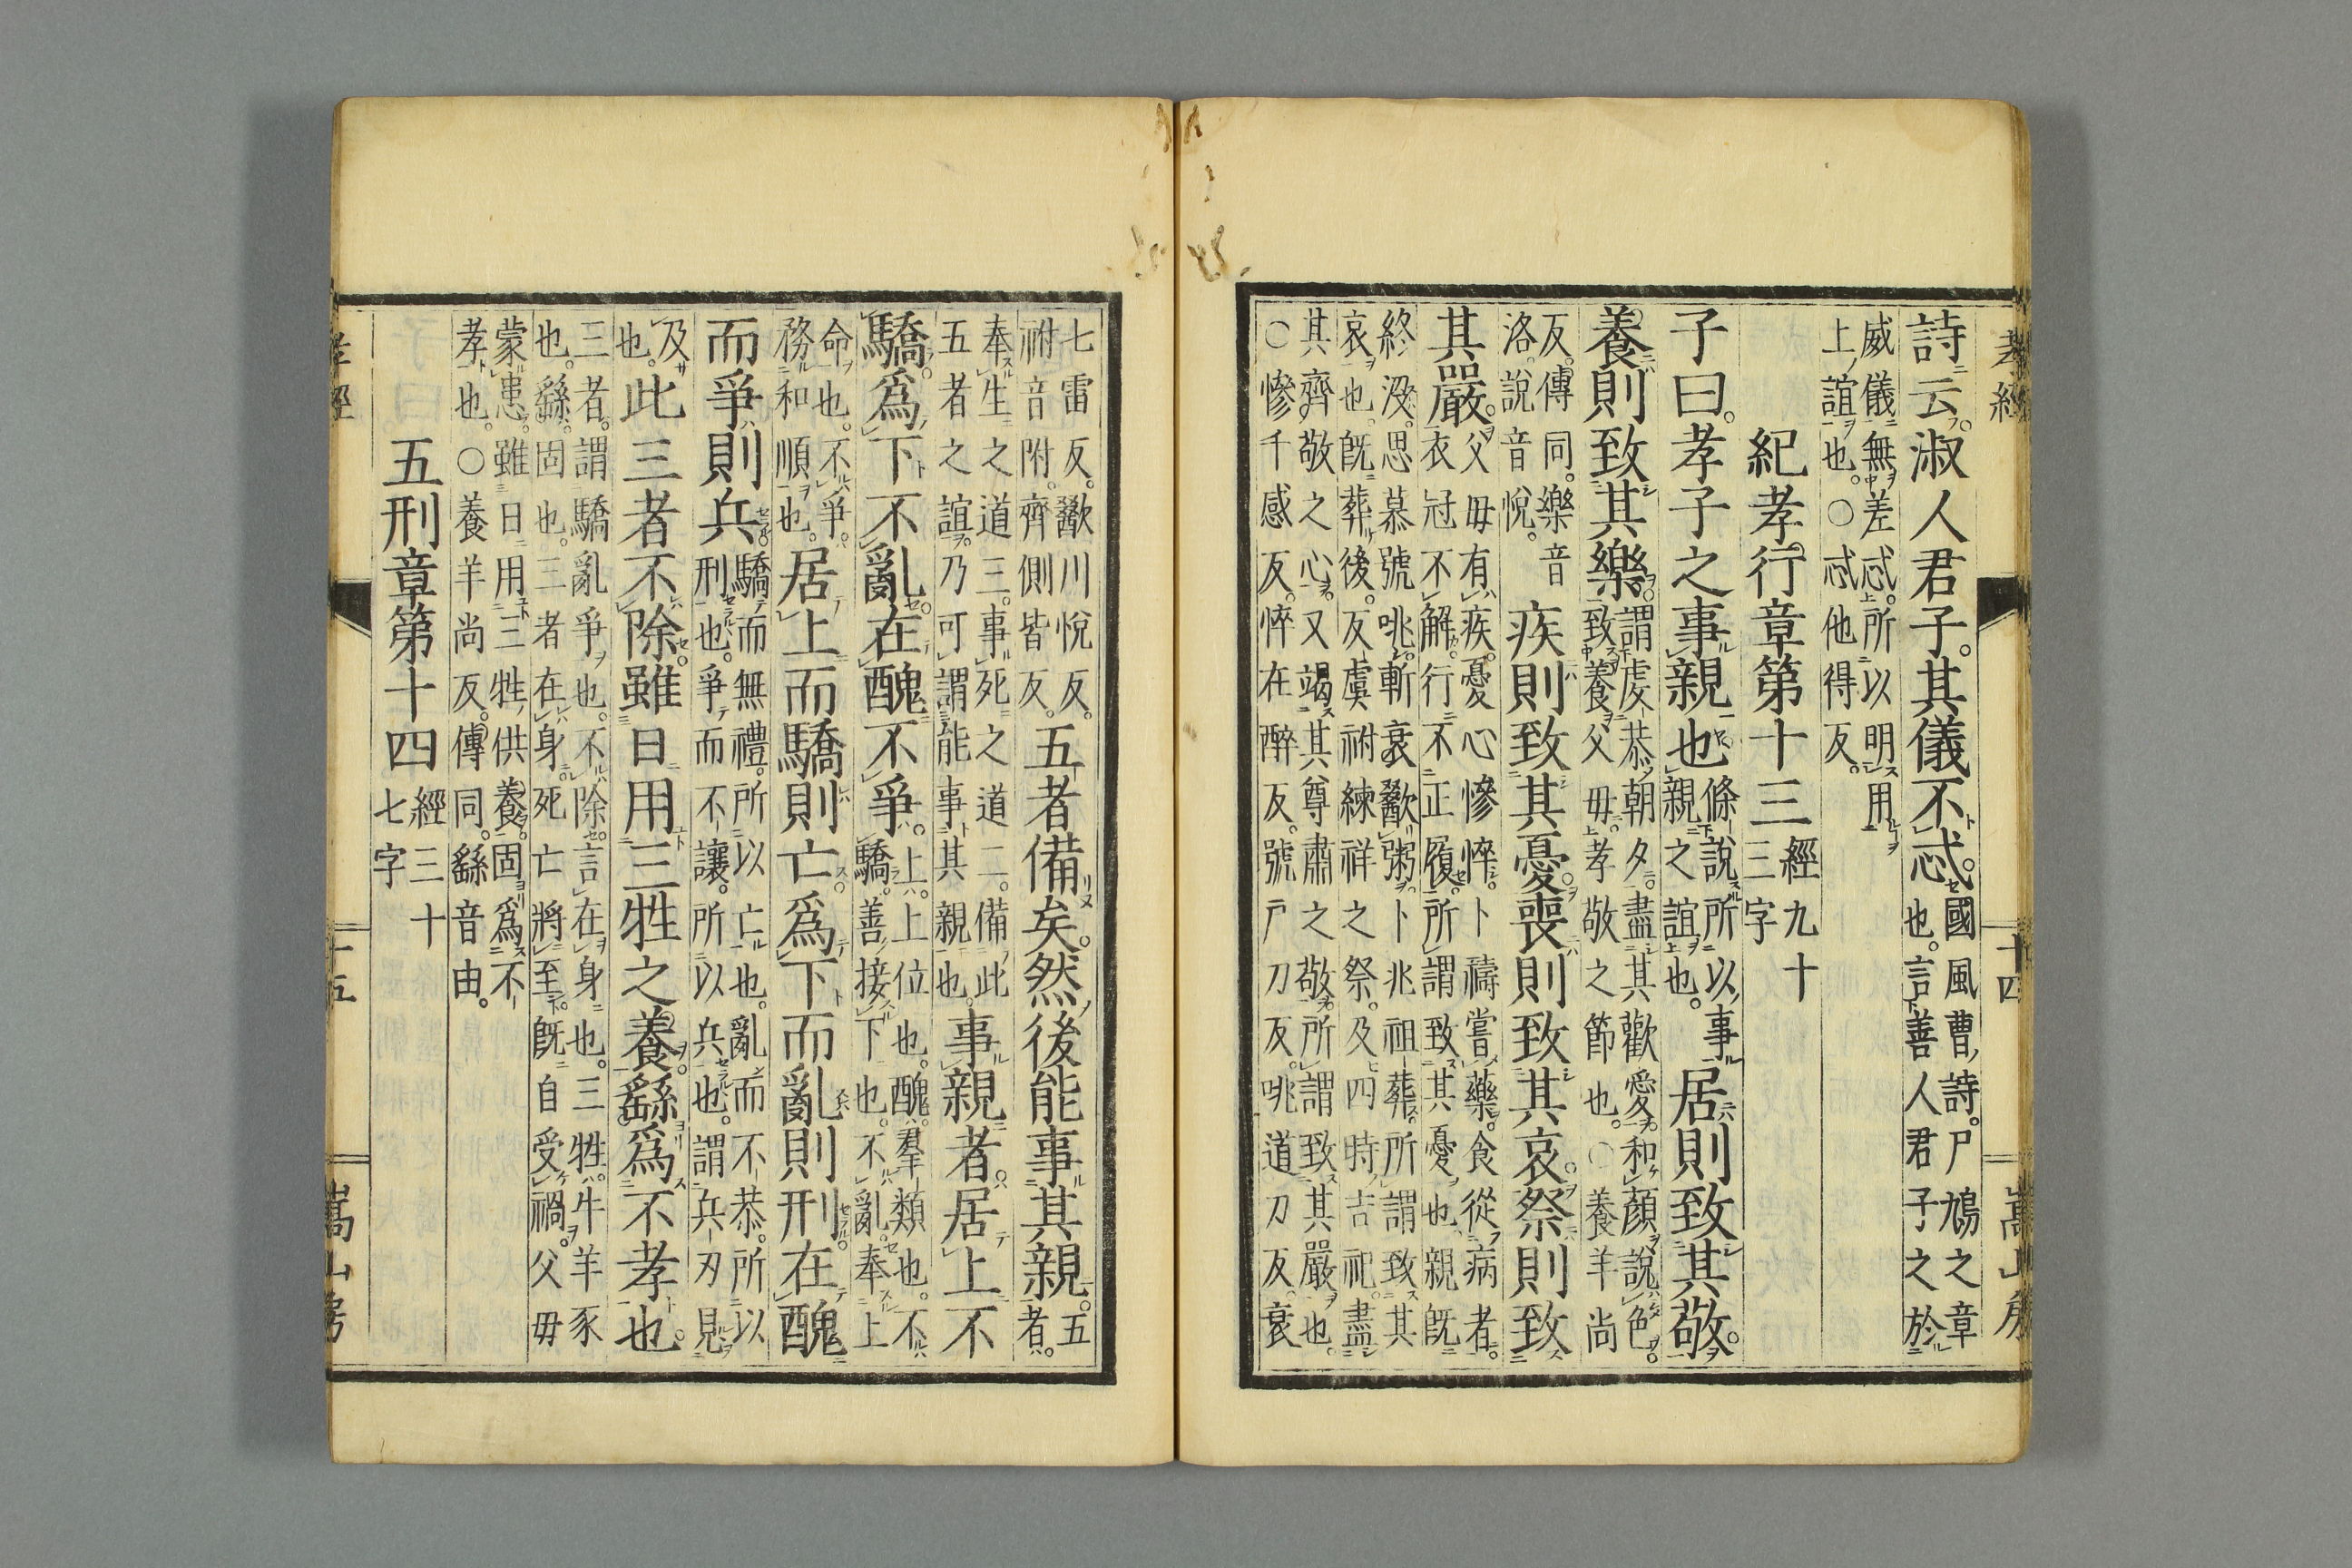 孝經 十四 嵩山房
詩云。淑人君子。其儀不忒。國風曹詩。尸鳩之章也。言善人君子之於
威儀無差忒。所以明用上誼也。○忒他得反。
紀孝行章第十三 經九十三字
子曰。孝子之事親也。條說所以事親之誼也。居則致其敬。
養則致其樂。謂虔恭朝夕。盡其歡愛。和顏說色。致養父母。孝敬之節也。○養羊尚
反。傳同。樂音洛。說音悅。疾則致其憂。喪則致其哀。祭則致
其嚴。父母有疾。憂心慘悴。卜禱嘗藥。食從病者。衣冠不解。行不正履。所謂致其憂也。親既
終沒。思慕號咷。斬衰歠粥。卜兆祖葬。所謂致其哀也。既葬後。反虞祔練祥之祭。及四時吉祀。盡
其齊敬之心。又竭其尊肅之敬。所謂致其嚴也。○慘千感反。悴在醉反。號戶刀反。咷道刀反。衰
七雷反。歠川悅反。祔音附。齊側皆反。五者備矣。然後能事其親。五者。
奉生之道三。事死之道二。備此五者之誼。乃可謂能事其親也。事親者。居上不
驕。爲下不亂。在醜不爭。上。上位也。醜。羣類也。不驕。善接下也。不亂。奉上
命也。不爭。務和順也。居上而驕則亡。爲下而亂則刑。在醜
而爭則兵。驕而無禮。所以亡也。亂而不恭。所以刑也。爭而不讓。所以兵也。謂兵刃見
及也。此三者不除。雖日用三牲之養。繇爲不孝也。
三者。謂驕亂爭也。不除。言在身也。三牲。牛羊豕也。繇。固也。三者在身。死亡將至。既自受禍。父母
蒙患。雖日用三牲供養。固爲不孝也。○養羊尚反。傳同。繇音由。
五刑章第十四 經三十七字
孝經 十五 嵩山房